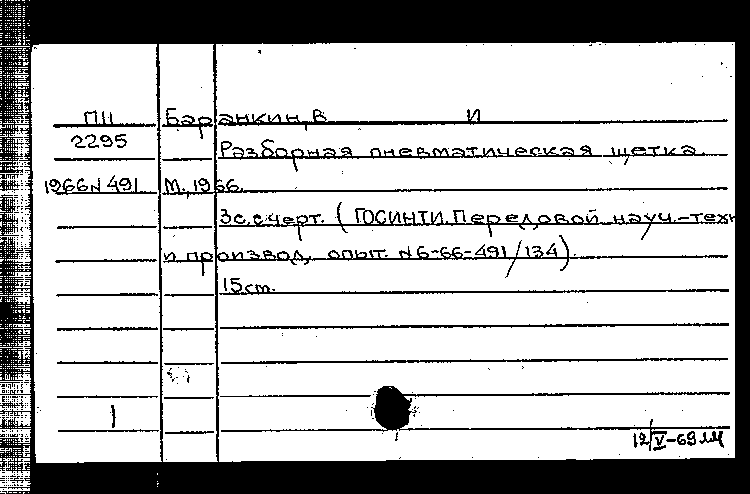 ПП Баранкин, В И
2295 Разборная пневматическая щетка.
1966 N 491 М., 1966.
3 с. с черт. (ГОСИНТИ. Передовой науч.-техн
и производ. опыт. N 6-66-491/134)
15 cm.
1
12/V-69